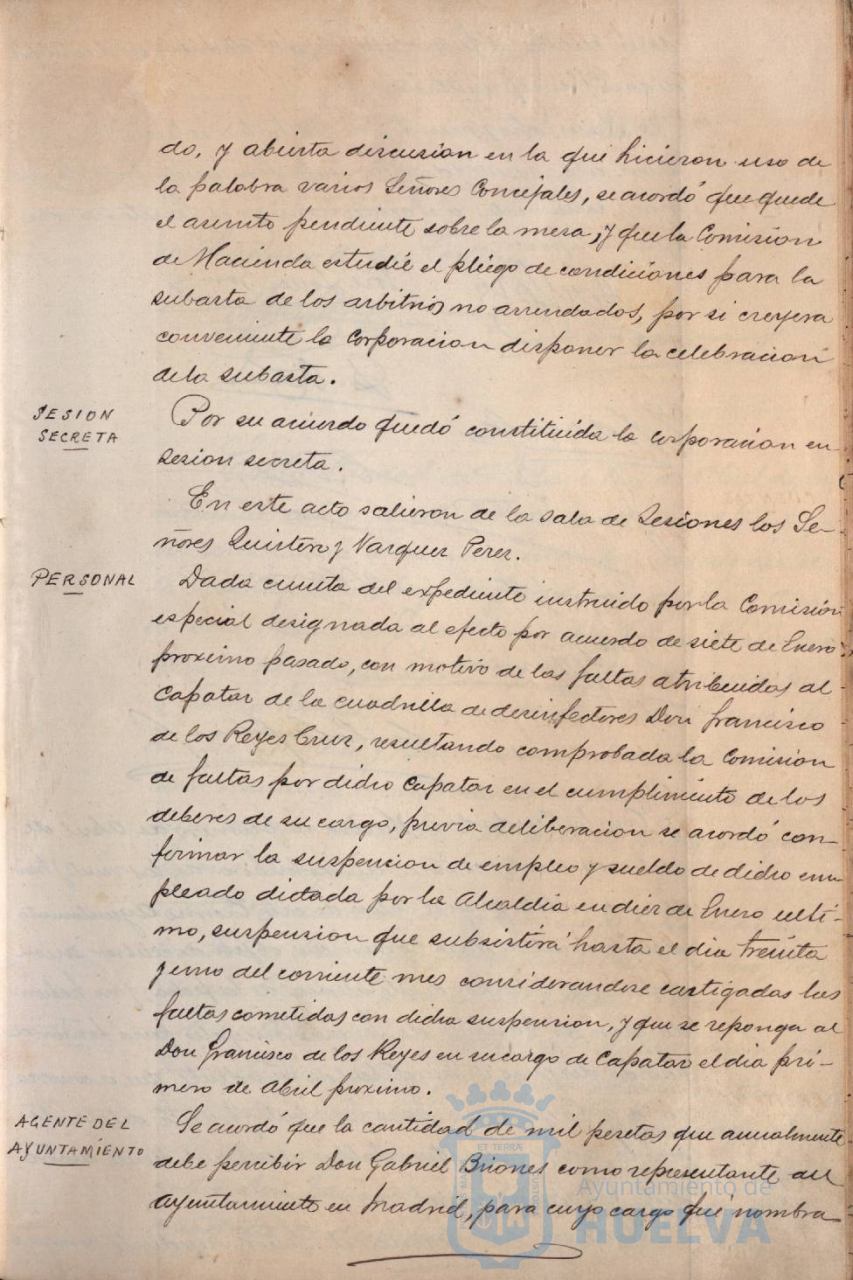 do, y abierta discusion en la que hicieron uso de
la palabra varios Señores Concejales, se acordó que quede
el asunto pendiente sobre la mesa, y que la Comision
de Hacienda estudie el pliego de condiciones para la
subasta de los arbitrios no arrendados, por si creyera
conveniente la Corporacion disponer la celebracion
de la subasta.
SESION
SECRETA
Por su acuerdo quedó constituida la corporacion en
sesion secreta.
En este acto salieron de la sala de Sesiones los Se-
ñores Quintero y Vazquez Perez.
PERSONAL
Dada cuenta del expediente instruido por la Comisión
especial designada al efecto por acuerdo de siete de Enero
proximo pasado, con motivo de las faltas atribuidas al
capataz de la cuadrilla de desinfectores Don Francisco
de los Reyes Cruz, resultando comprobada la comision
de faltas por dicho Capataz en el cumplimiento de los
deberes de su cargo, previa deliberacion se acordó con-
firmar la suspension de empleo y sueldo de dicho em
pleado dictada por la Alcaldia en diez de Enero ulti-
mo, suspension que subsistirá hasta el dia treinta
y uno del corriente mes considerandose castigadas las
faltas cometidas con dicha suspension, y que se reponga al
Don Francisco de los Reyes en su cargo de Capataz el dia pri-
mero de Abril proximo.
AGENTE DEL
AYUNTAMIENTO
Se acordó que la cantidad de mil pesetas que anualmente
debe percibir Don Gabriel Briones como representante del
ayuntamiento en Madrid, para cuyo cargo fué nombra
ET TERRAE
Ayuntamiento de
HUELVA